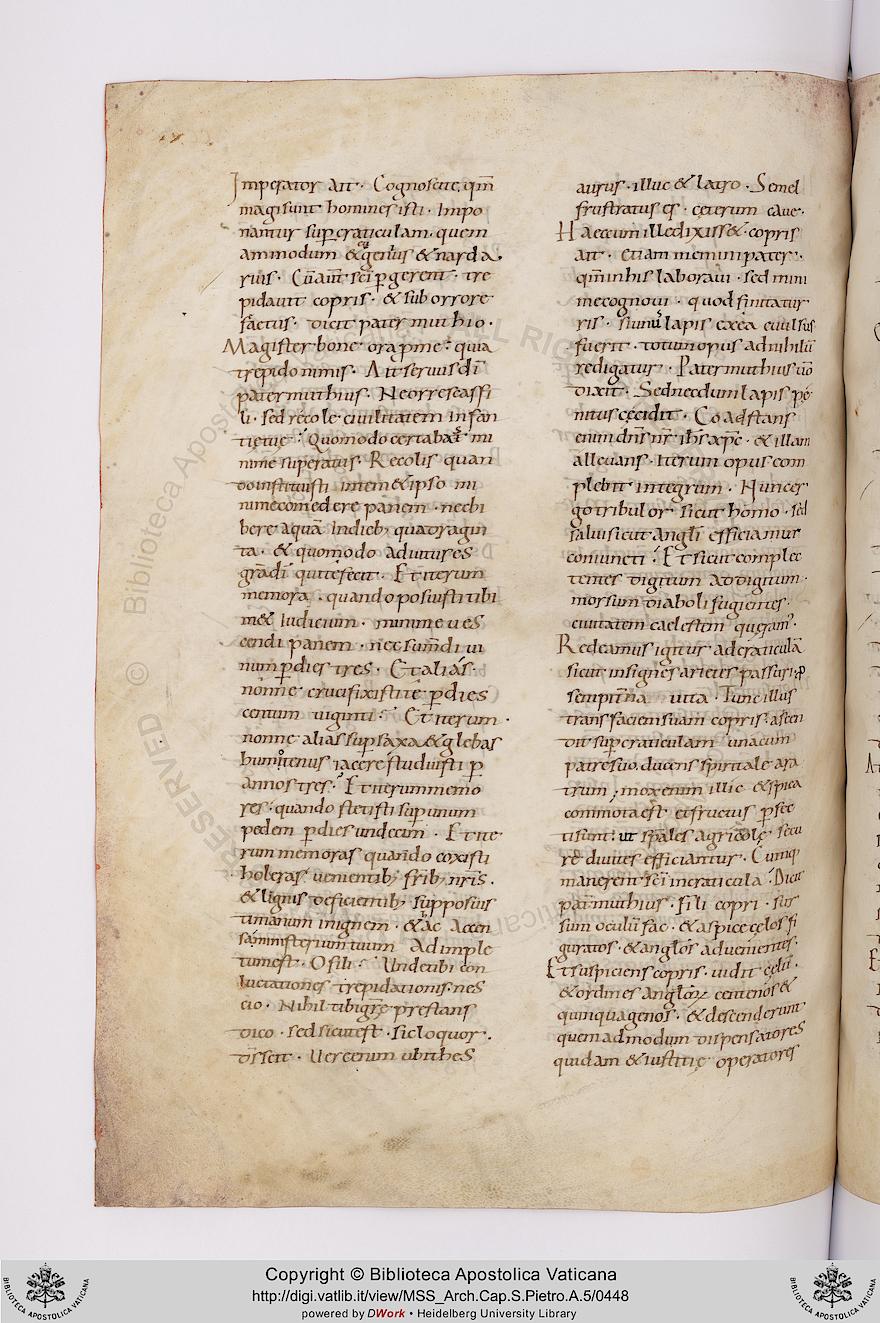 Imperator ait · Cognoscite, qm̄
magi sunt homines isti · Impo
nantur super craticulam · quem
ammodum & genius & nardа
rius · Cū aut̄ sc̄i ꝑgerent · tre
pidavit copris · & sub orrore
factus · dicit pater muthio ·
Magister bone · ora ꝑ me · quia
trepido nimis · Ait servus dī
pater muthius · Ne orrescas fi
li · sed recole civilitatem in san
Quomodo certabas · mi
nime superatus · Recolis quan
do instituisti in temetipso mi
nime comedere panem · nec bi
bere aquā in dieb; quadragin
ta · & quomodo adiutus es
gr̄a dī qui te fecit · Et iterum
memora · quando posuisti tibi
met iudicium · minime ves
cendi panem · nec sum̄di vi
num ꝑ dies tres · Et alias ·
nonne crucifixisti te ꝑ dies
centum viginti · Et iterum ·
nonne alias sup saxa & glebas
humi tenus iacere studuisti ꝑ
annos tres · Et iterum memo
res · quando stetisti sup unum
pedem ꝑ dies undecim · Et ite
rum memoras quando coxisti
holeras venientib; frīb; nr̄is ·
& lignis deficientib; supposuis
ti manum in ignem · & ac accen
sa ministerium tuum adimple
tum est · O fili · Unde tibi con
luctationes trepidationis nes
cio · Nihil tibi gr̄e prestans
dico · sed sicut est · sic loquor ·
discit · Uer cerum ubi thes
aurus · illuc & latro · Semel
frustratus es · ceterum cave ·
Haec cum ille dixisset · copris
ait · Etiam memini pater ·
qm̄ in his laboravi · sed mini
me cognovi · quod si
ris · lapis evulsus
fuerit · totum opus ad nihilū
redigatur · Pater muthius ū̄o
dixit · Sed necdum lapis pe
nitus cecidit · Coadstans
enim dn̄s nr̄ ih̄s xp̄c · & illam
allevans · iterum opus com
plebit integrum · Nunc er
go tribulor sicut homo · sed
salvi sicut angli efficiamur
coniuncti · Et sicut complec
tentes digitum ad digitum ·
morsum diaboli fugientes ·
civitatem caelestem queram̄ ·
Redeamus igitur ad craticulā
sicut insignes arietes passuri ꝓ
sempit̄na vita · Tunc illus
trans faciem suam copris · ascen
dit super craticulam una cum
patre suo · ducens spiritale ara
trum · mox enim illic & spica
commota est et fructus ꝑfec
ti sunt · ut sp̄ales agricolę · secu
re divites efficiantur · Cumq;
manerent sc̄i in craticula · Dicit
pat muthius · Fili copri · sur
sum oculū fac · & aspice cęlos fi
guratos · & anglos advenientes ·
Et suspiciens copris · vidit cęlū ·
& ordines angloꝝ centenos &
quinquagenos · & descenderunt
quemadmodum dispensatores
quidam & iustitię operatores
Copyright © Biblioteca Apostolica Vaticana
http://digi.vatlib.it/view/MSS_Arch.Cap.S.Pietro.A.5/0448
powered by DWork • Heidelberg University Library